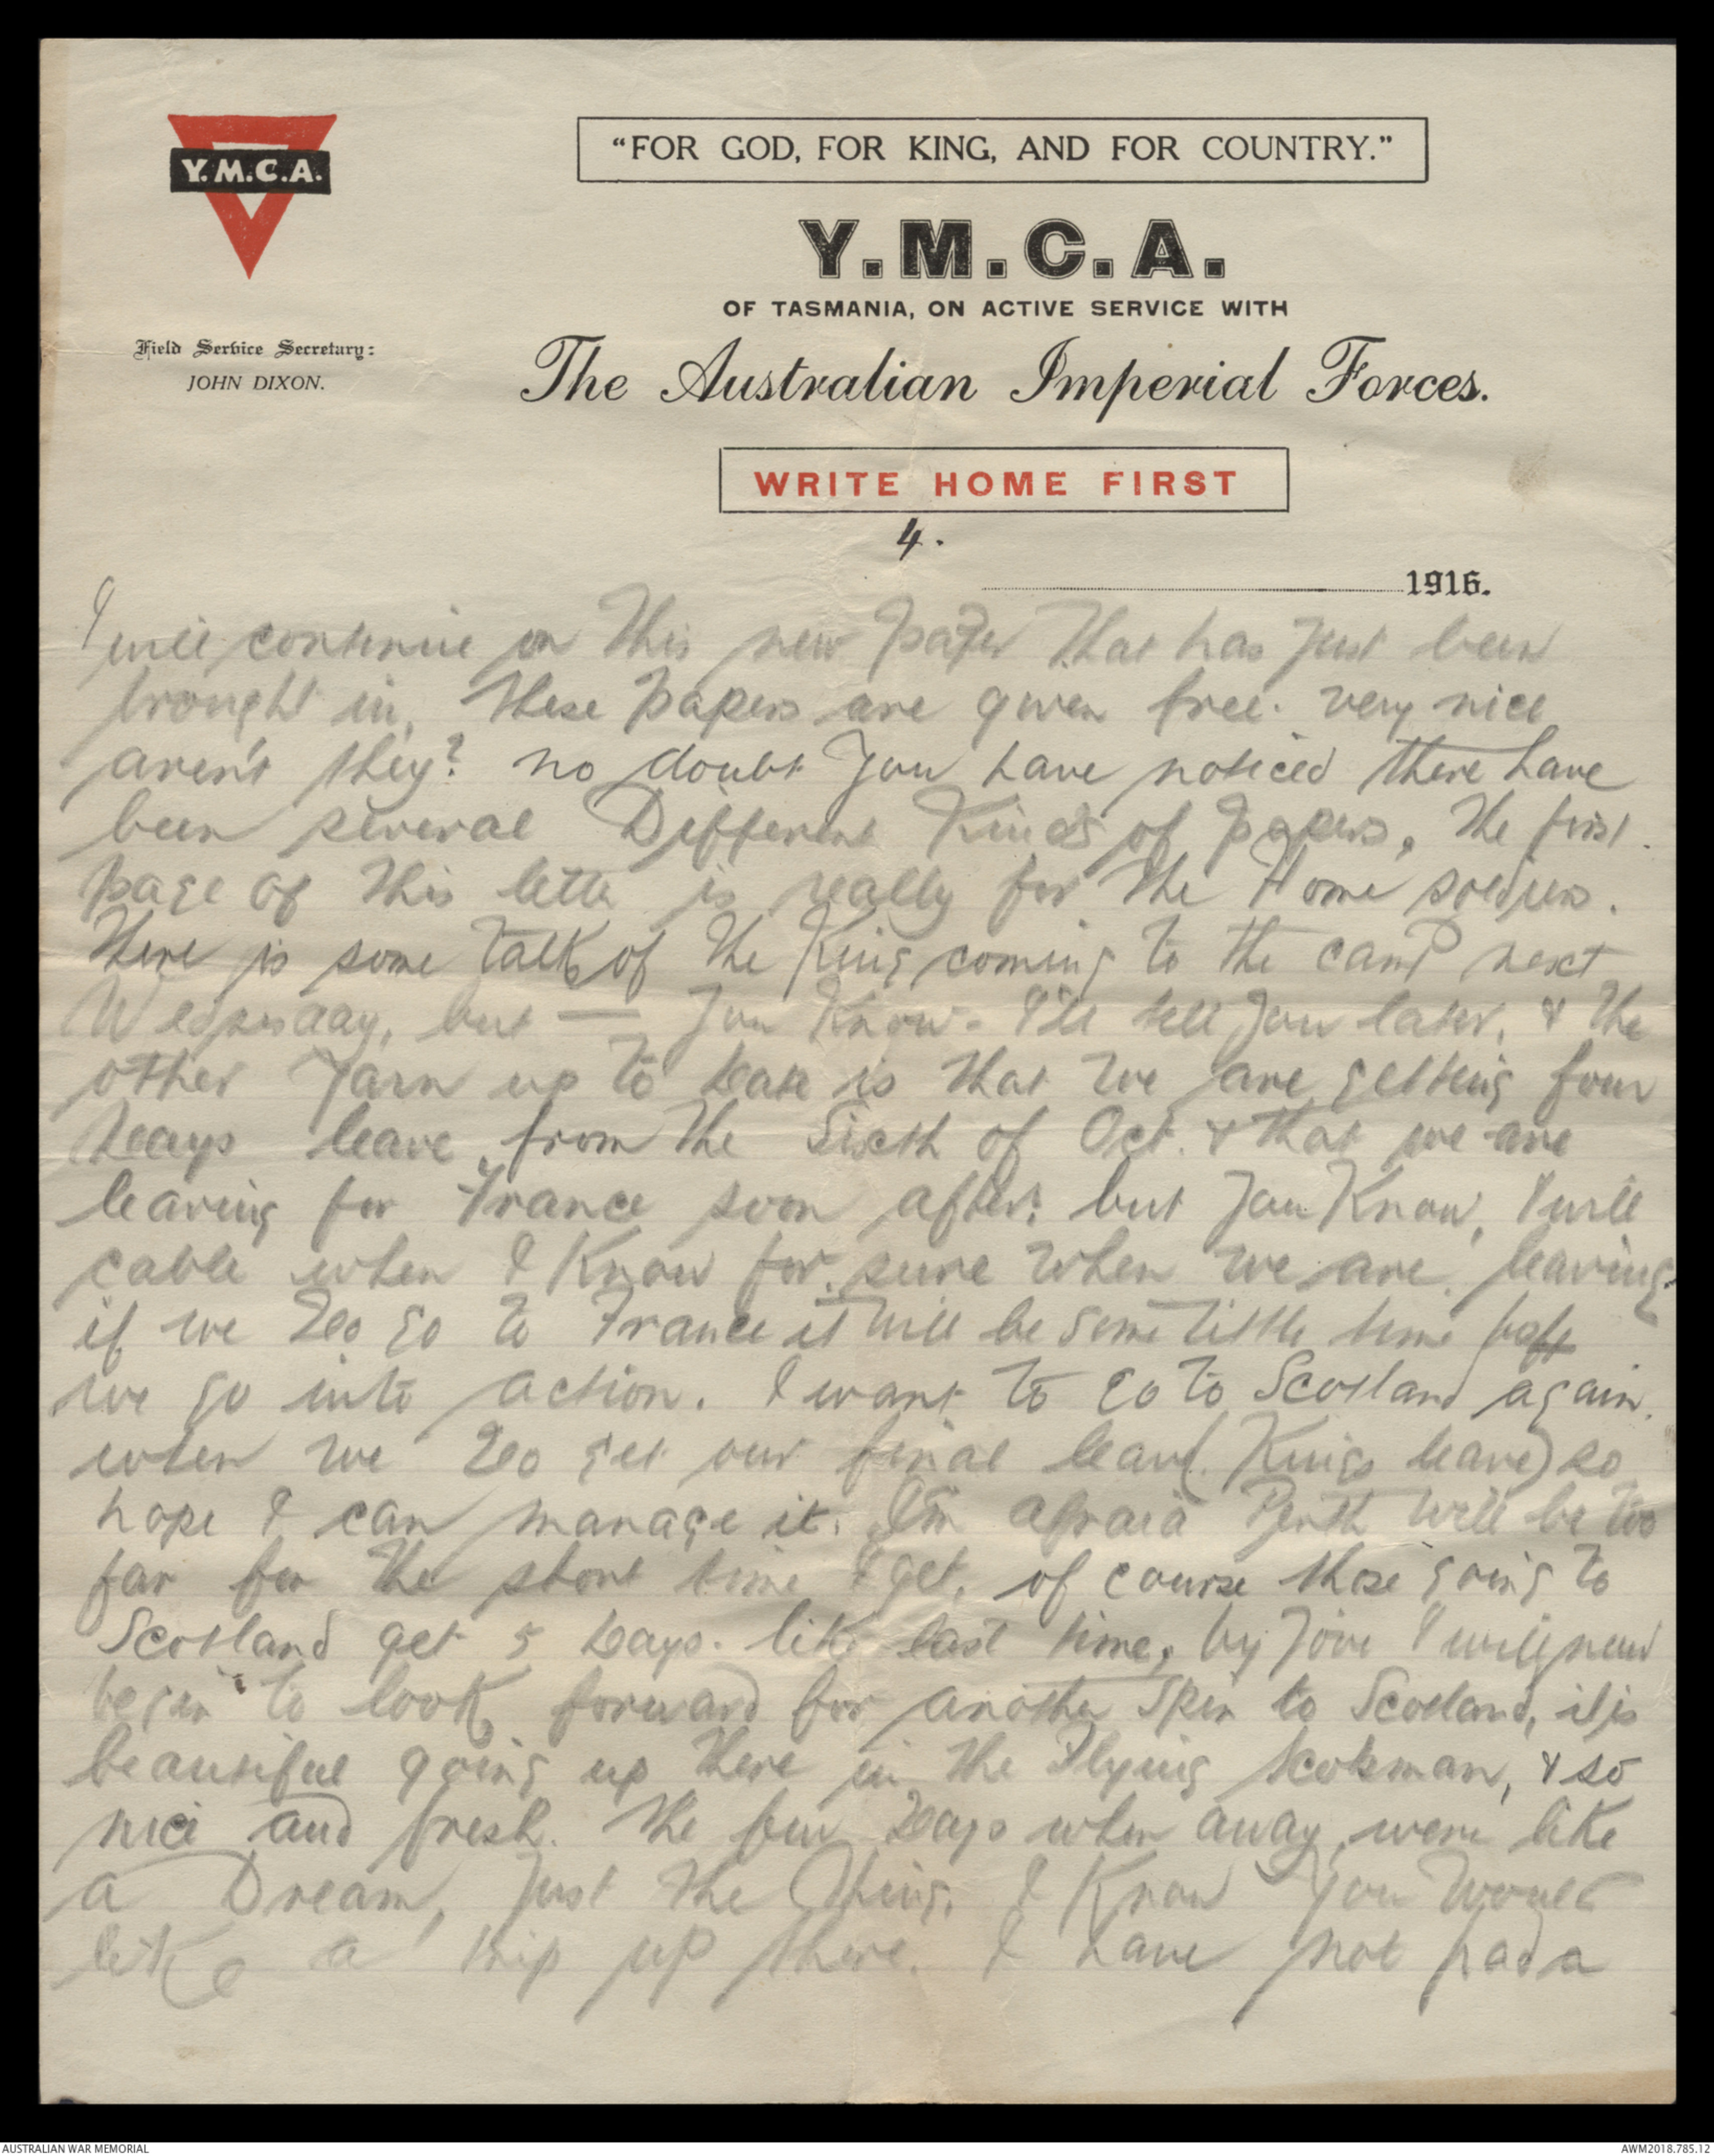 Y.M.C.A.
"FOR GOD, FOR KING, AND FOR COUNTRY."
Y.M.C.A.
OF TASMANIA, ON ACTIVE SERVICE WITH
Field Service Secretary:
JOHN DIXON.
The Australian Imperial Forces.
WRITE HOME FIRST
4.
1916.
I will continue on this new paper that has just been
brought in, these papers are given free. very nice
aren't they? no doubt you have noticed there have
been several Different Kinds of papers, the first
page of this letter is really for the Home soldiers.
there is some talk of the King coming to the camp next
Wednesday, but — you Know. I'll tell you later, & the
other yarn up to Date is that we are getting four
Days leave from the Sixth of Oct. & that we are
leaving for France soon after, but you Know, I will
cable when I Know for sure when we are leaving.
if we Do go to France it will be some little time
we go into action. I want to go to Scotland again
when we Do get our final leave (Kings leave) so
hope I can manage it. I'm afraid Perth will be too
far for the short time I get, of course those going to
Scotland get 5 Days. like last time, by jove I will now
begin to look forward for another spin to Scotland, it is
beautiful going up there in the Flying Scotsman, & so
nice and fresh. the few Days when away, were like
a Dream, just the thing. I Know you would
like a trip up there. I have not had a
AUSTRALIAN WAR MEMORIAL
AWM2018.785.12